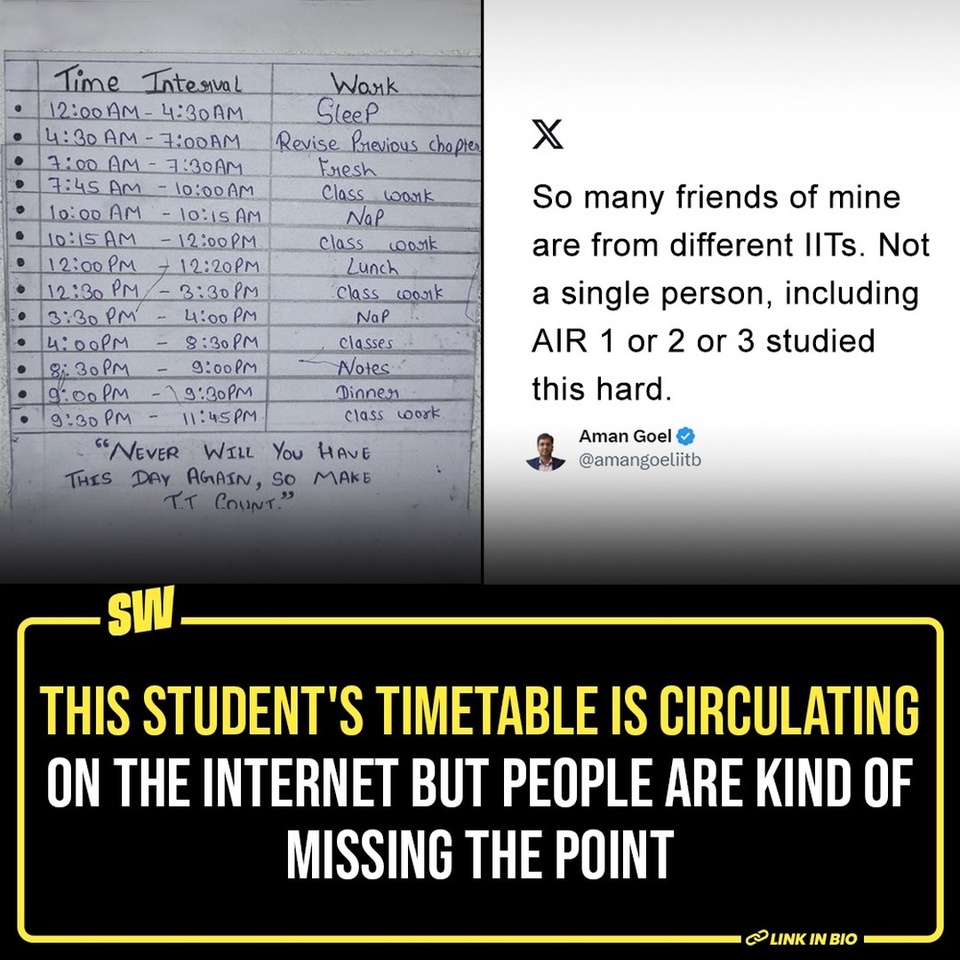 Time Interval Work
12:00 AM - 4:30 AM Sleep
4:30 AM - 7:00 AM Revise Previous chapter
7:00 AM - 7:30 AM Fresh
7:45 AM - 10:00 AM Class work
10:00 AM - 10:15 AM Nap
10:15 AM - 12:00 PM Class work
12:00 PM - 12:20 PM Lunch
12:30 PM - 3:30 PM Class work
3:30 PM - 4:00 PM Nap
4:00 PM - 8:30 PM classes
8:30 PM - 9:00 PM Notes
9:00 PM - 9:30 PM Dinner
9:30 PM - 11:45 PM class work
"NEVER WILL YOU HAVE
THIS DAY AGAIN, SO MAKE
I.T COUNT."
X
So many friends of mine
are from different IITs. Not
a single person, including
AIR 1 or 2 or 3 studied
this hard.
Aman Goel
@amangoeliitb
SW
THIS STUDENT'S TIMETABLE IS CIRCULATING
ON THE INTERNET BUT PEOPLE ARE KIND OF
MISSING THE POINT
LINK IN BIO